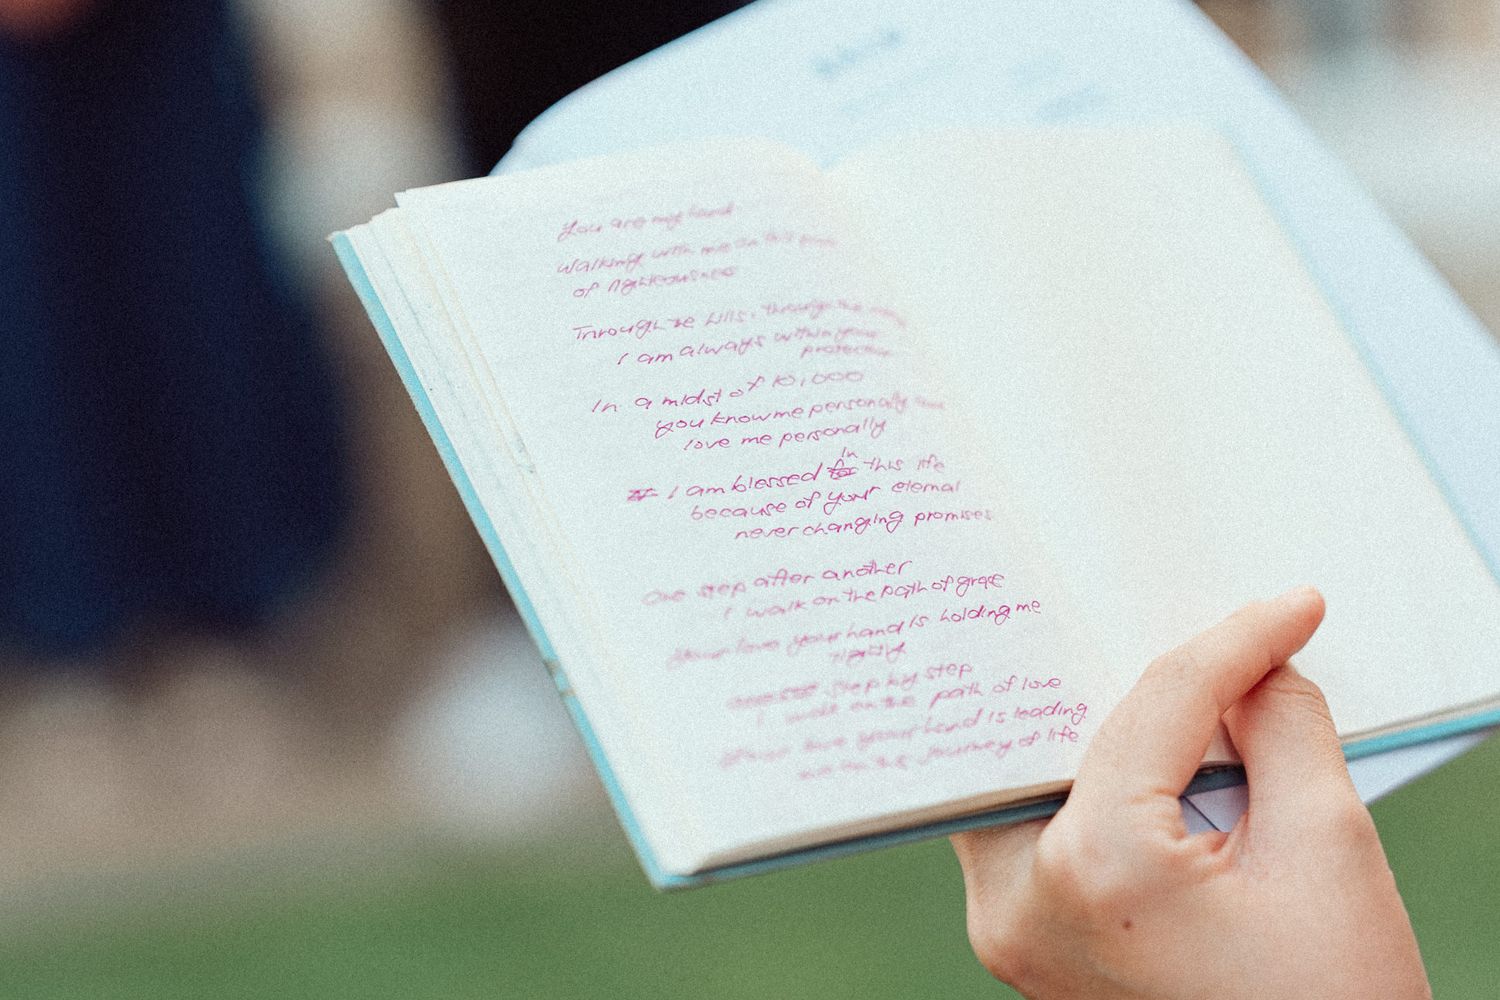 You are my hand
Walking with me on this
of righteousness
Through the hills, through the
I am always within your
protection
In a midst of 10,000
you know me personally
love me personally
I am blessed in this life
because of your eternal
never changing promises
One step after another
I walk on the path of grace
Your love your hand is holding me
tightly
step by step
I walk on the path of love
Your love your hand is leading
me on the journey of life